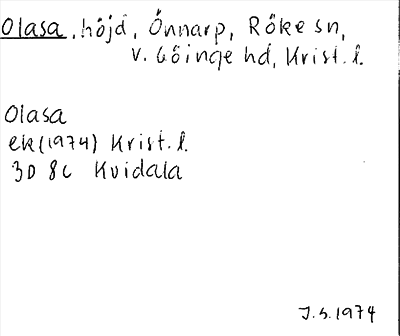 Olasa, höjd, Önnarp, Röke sn,
V. Göinge hd, Krist. l.
Olasa
ek (1974) Krist. l.
3D 8c Kvidala
J.S. 1974